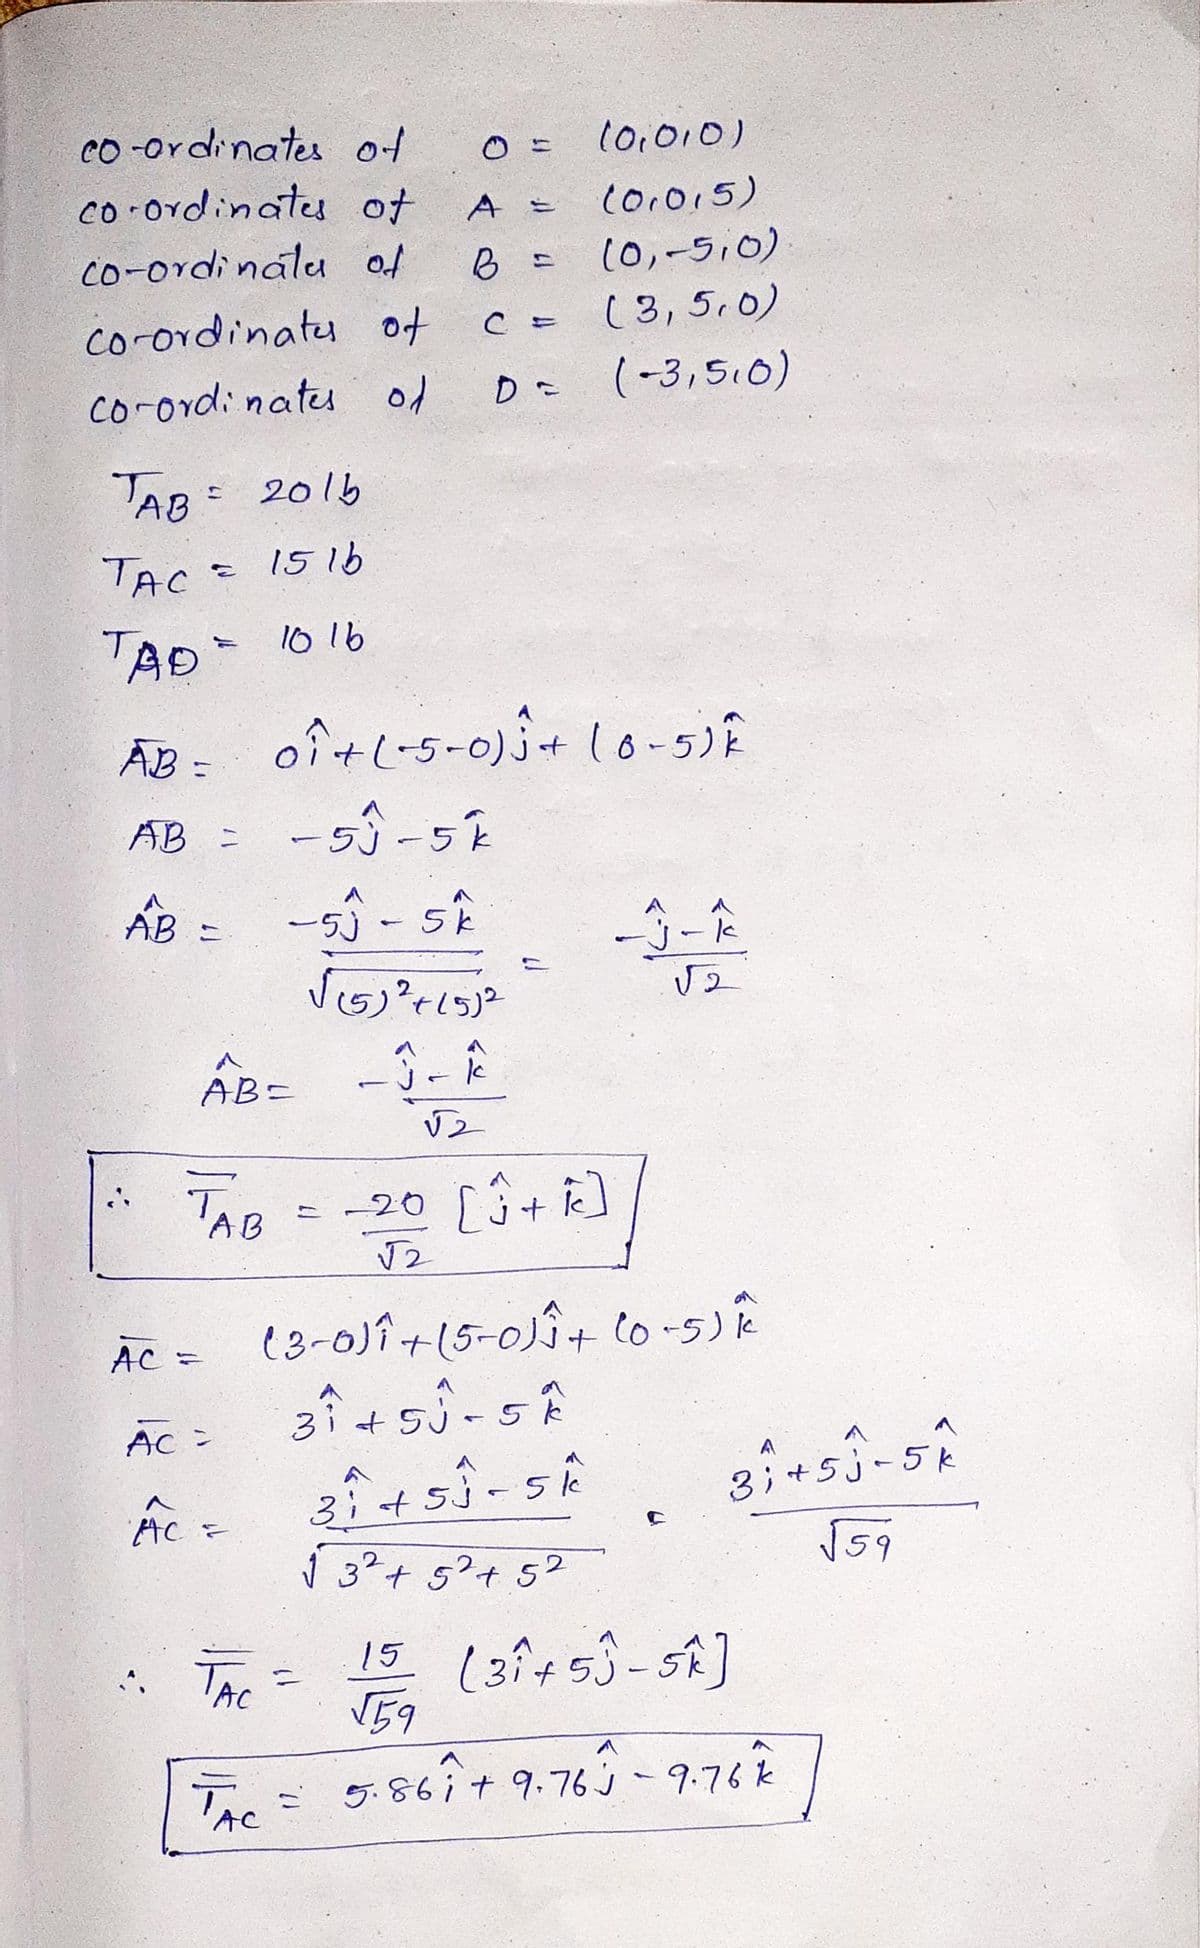 co-ordinates of O = (0,0,0)
co-ordinates of A = (0,0,5)
co-ordinates of B = (0,-5,0)
co-ordinates of C = (3,5,0)
co-ordinates of D = (-3,5,0)
T_AB = 20 lb
T_AC = 15 lb
T_AD = 10 lb
A̅B̅ = 0î + (-5-0)ĵ + (0-5)k̂
A̅B̅ = -5ĵ - 5k̂
ÂB = (-5ĵ - 5k̂)/√((5)²+(5)²) = (-ĵ - k̂)/√2
ÂB = (-ĵ - k̂)/√2
∴ T̅_AB = -20/√2 [ĵ + k̂]
A̅C̅ = (3-0)î + (5-0)ĵ + (0-5)k̂
A̅C̅ = 3î + 5ĵ - 5k̂
ÂC = (3î + 5ĵ - 5k̂)/√(3² + 5² + 5²) = (3î + 5ĵ - 5k̂)/√59
∴ T̅_AC = 15/√59 (3î + 5ĵ - 5k̂]
T̅_AC = 5.86î + 9.76ĵ - 9.76k̂